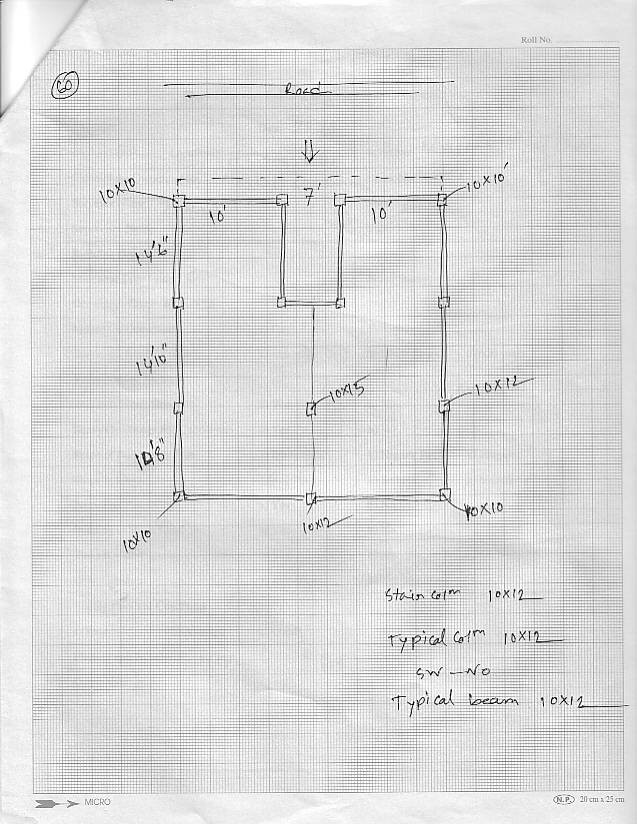 Roll No.
60
Road
10X10
7'
10X10'
10'
10'
14'6"
14'10"
10X15
10X12
10'8"
10X12
10X10
10X10
Stair colm 10X12
Typical colm 10X12
SW - NO
Typical beam 10X12
MICRO
N.P. 20 cm x 25 cm